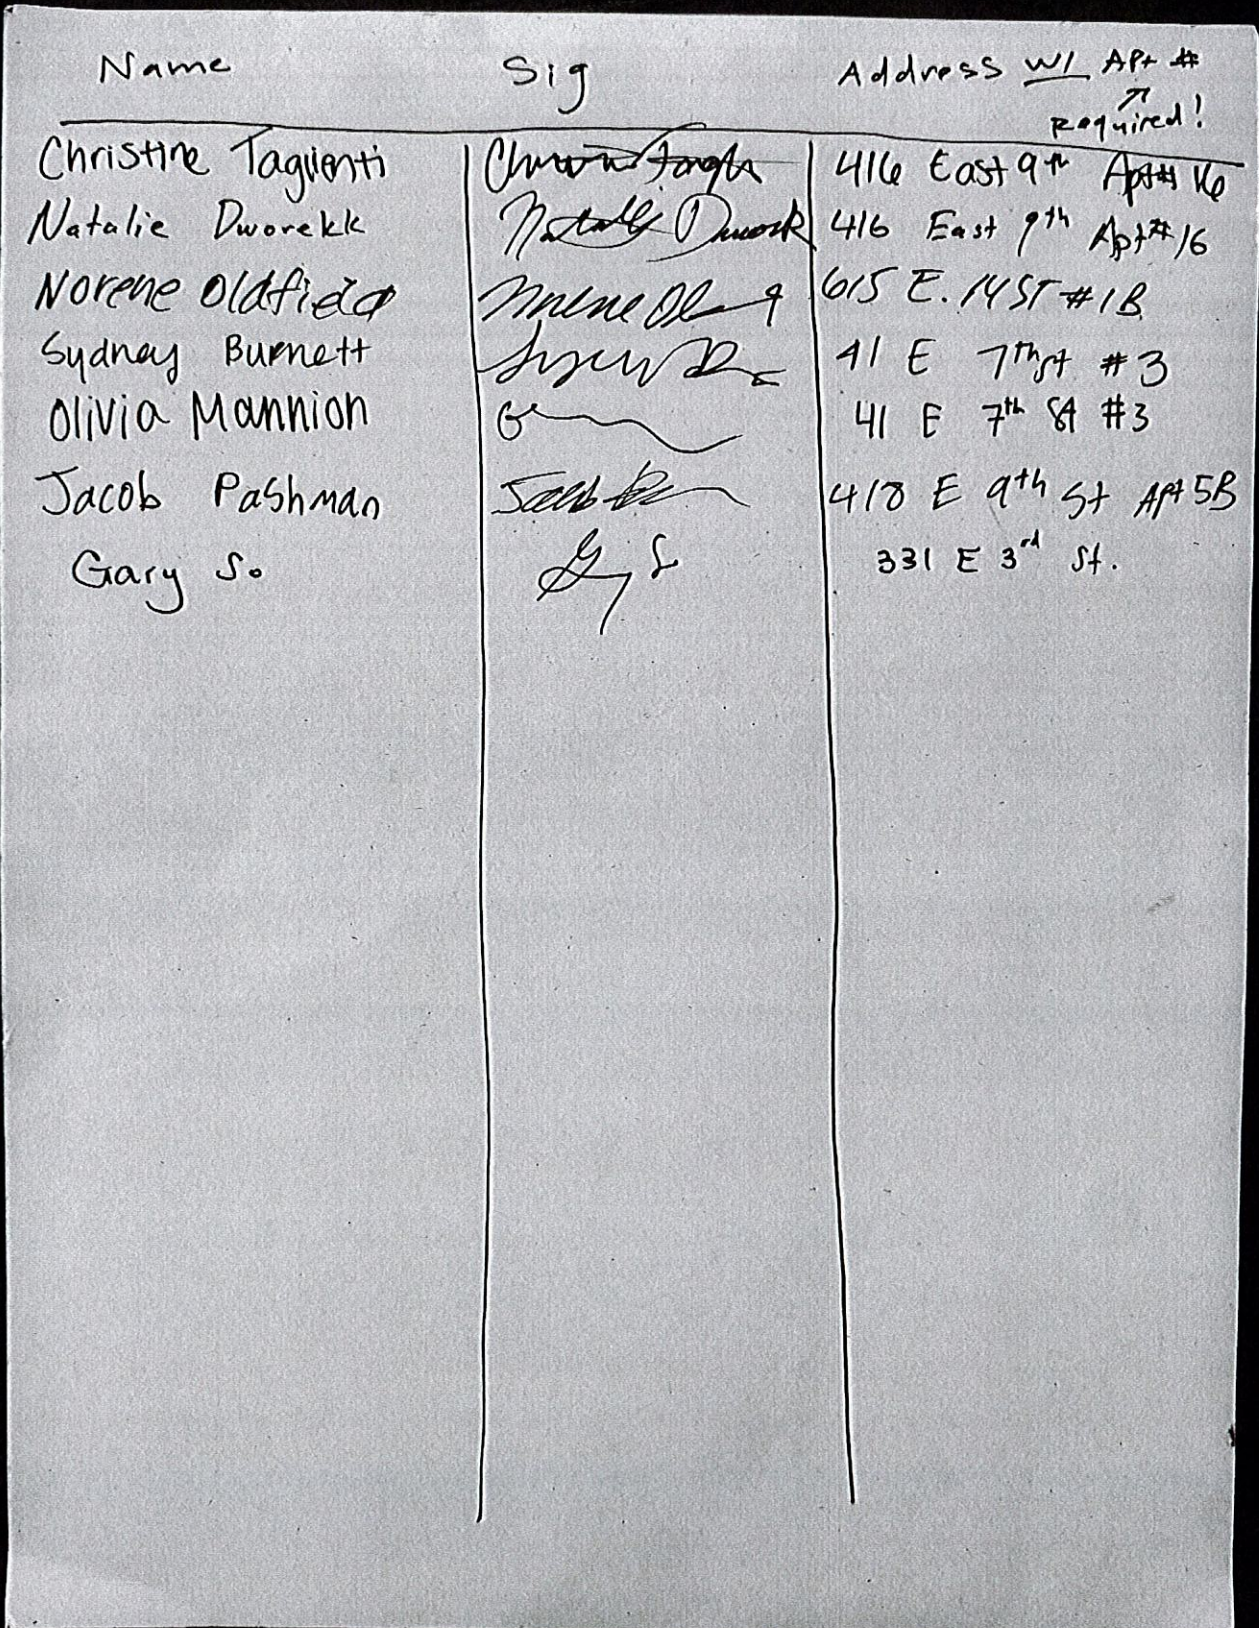 Name Sig Address w/ Apt #
Required!
Christine Taglienti 416 East 9th Apt# 16
Natalie Dworekk Natalie Dwork 416 East 9th Apt# 16
Norene Oldfield Norene Ol 615 E. 14 ST #1B
Sydney Burnett 41 E 7th st #3
Olivia Mannion 41 E 7th St #3
Jacob Pashman Jacob 418 E 9th St Apt 5B
Gary S. Gy S 331 E 3rd St.